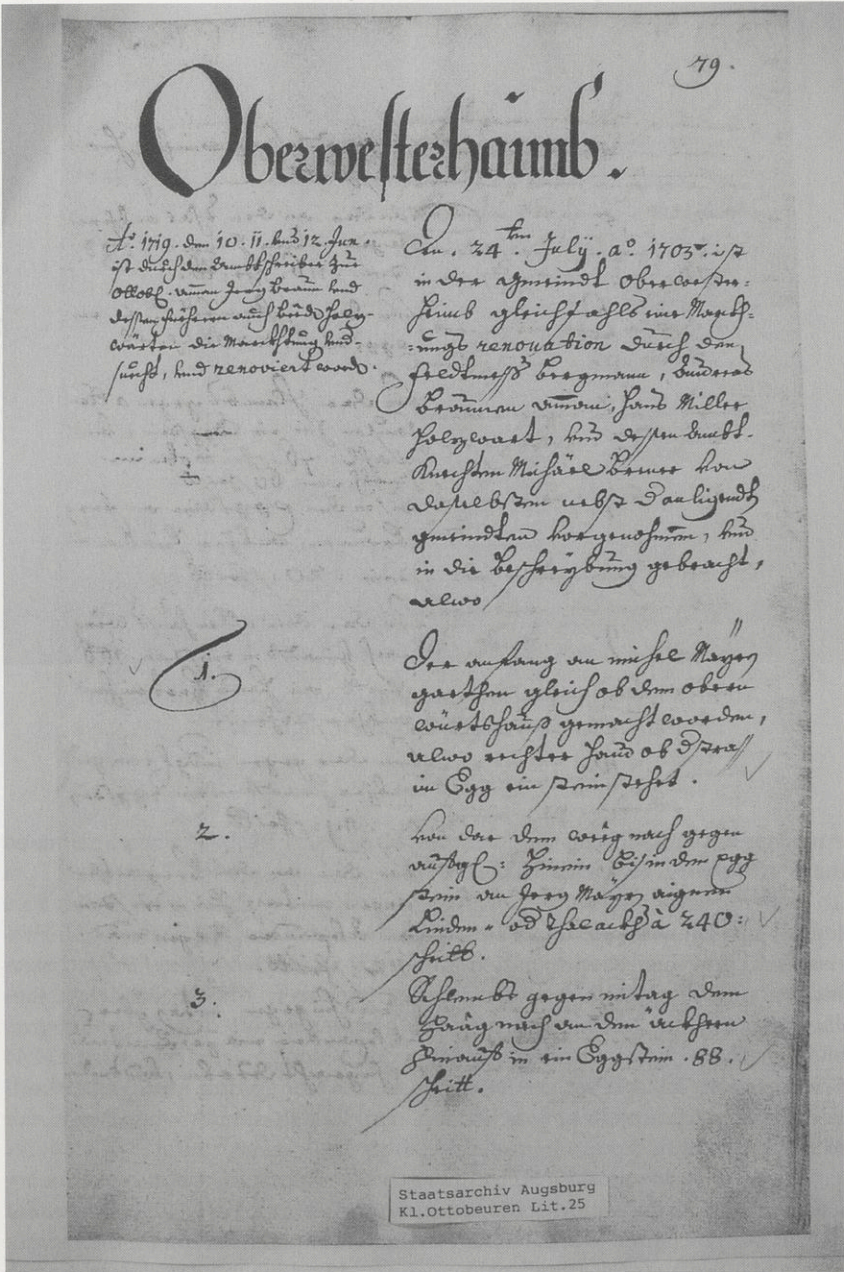 79.
Oberwesterhaimb.
Aº. 1719. den 10. 11. und 12. Jun.
ist durch den Ambtschreiber zue
Ottob. amman Jerg Braun und
dessen auch beed Holz-
warten die Marckhung
sucht, und renoviert word.
Den. 24ten. July. aº. 1703. ist
in der gmeindt Oberwester-
heimb gleichfahls eine Marckh-
ungs renovation durch den
Feldtmess Bergmann,
Braunen aman, Hans Miller
Holzwart, und dessen Ambt-
Knechten Michael von
daselbsten nebst d anligendt
gmeindten vorgenohmen, und
in die Beschreybung gebracht,
alwo
1.
Der anfang an michel Mayrs
garthen gleich ob dem obern
würtshauß gemacht worden,
alwo rechter Hand ob d strass
im Egg ein stein stehet.
2.
Von dar dem weeg nach gegen
aufgl: Hinein bis in den egg
stein an Jerg Mayrs aignen
Linden- od à 240:
schritt.
3.
Schlembs gegen mitag dem
Haag nach an den äckhern
hinauß in ein Eggstein. 88.
schritt.
Staatsarchiv Augsburg
Kl.Ottobeuren Lit.25